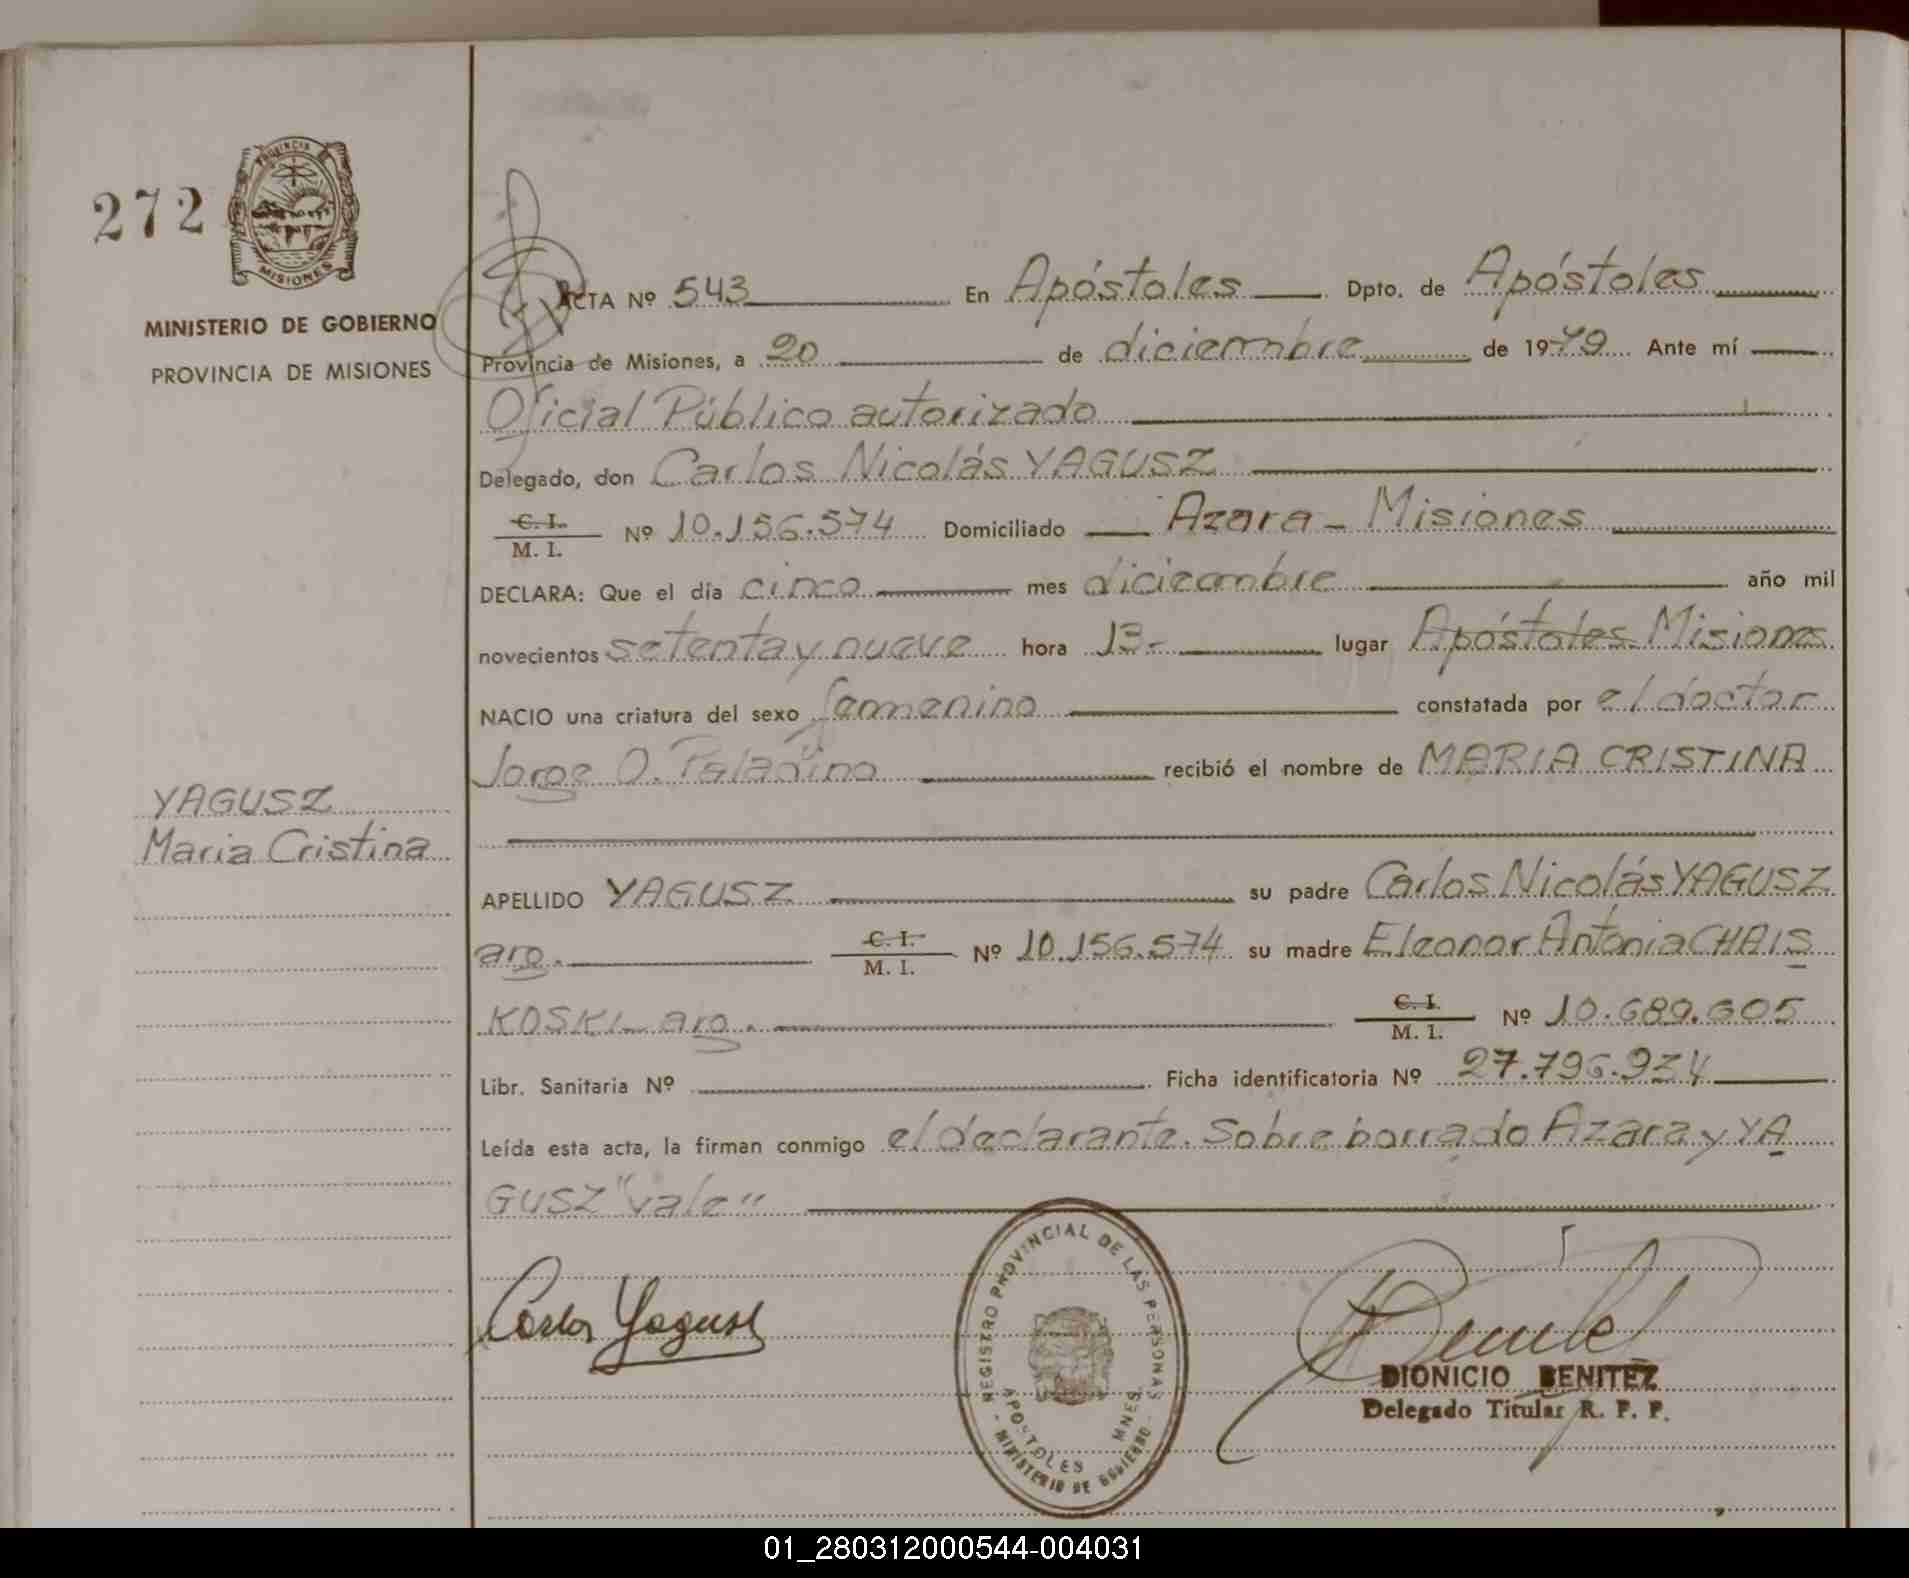 272
PROVINCIA
MISIONES
MINISTERIO DE GOBIERNO
PROVINCIA DE MISIONES
YAGUSZ
Maria Cristina
ACTA Nº 543 En Apóstoles Dpto. de Apóstoles
Provincia de Misiones, a 20 de diciembre de 1979 Ante mí
Oficial Público autorizado
Delegado, don Carlos Nicolás YAGUSZ
C. I.
M. I. Nº 10.156.574 Domiciliado Azara - Misiones
DECLARA: Que el día cinco mes diciembre año mil
novecientos setenta y nueve hora 13- lugar Apóstoles Misiones
NACIO una criatura del sexo femenino constatada por el doctor
Jorge O. Paladino recibió el nombre de MARIA CRISTINA
APELLIDO YAGUSZ su padre Carlos Nicolás YAGUSZ
arg. C. I.
M. I. Nº 10.156.574 su madre Eleonor Antonia CHAIS
KOSKI arg. C. I.
M. I. Nº 10.689.605
Libr. Sanitaria Nº Ficha identificatoria Nº 27.796.934
Leída esta acta, la firman conmigo el declarante. Sobre borrado Azara y YA
GUSZ "vale"
Carlos Yagusz
REGISTRO PROVINCIAL DE LAS PERSONAS
APOSTOLES MNES
- MINISTERIO DE GOBIERNO -
DIONICIO BENITEZ
Delegado Titular R. P. P.
01_280312000544-004031